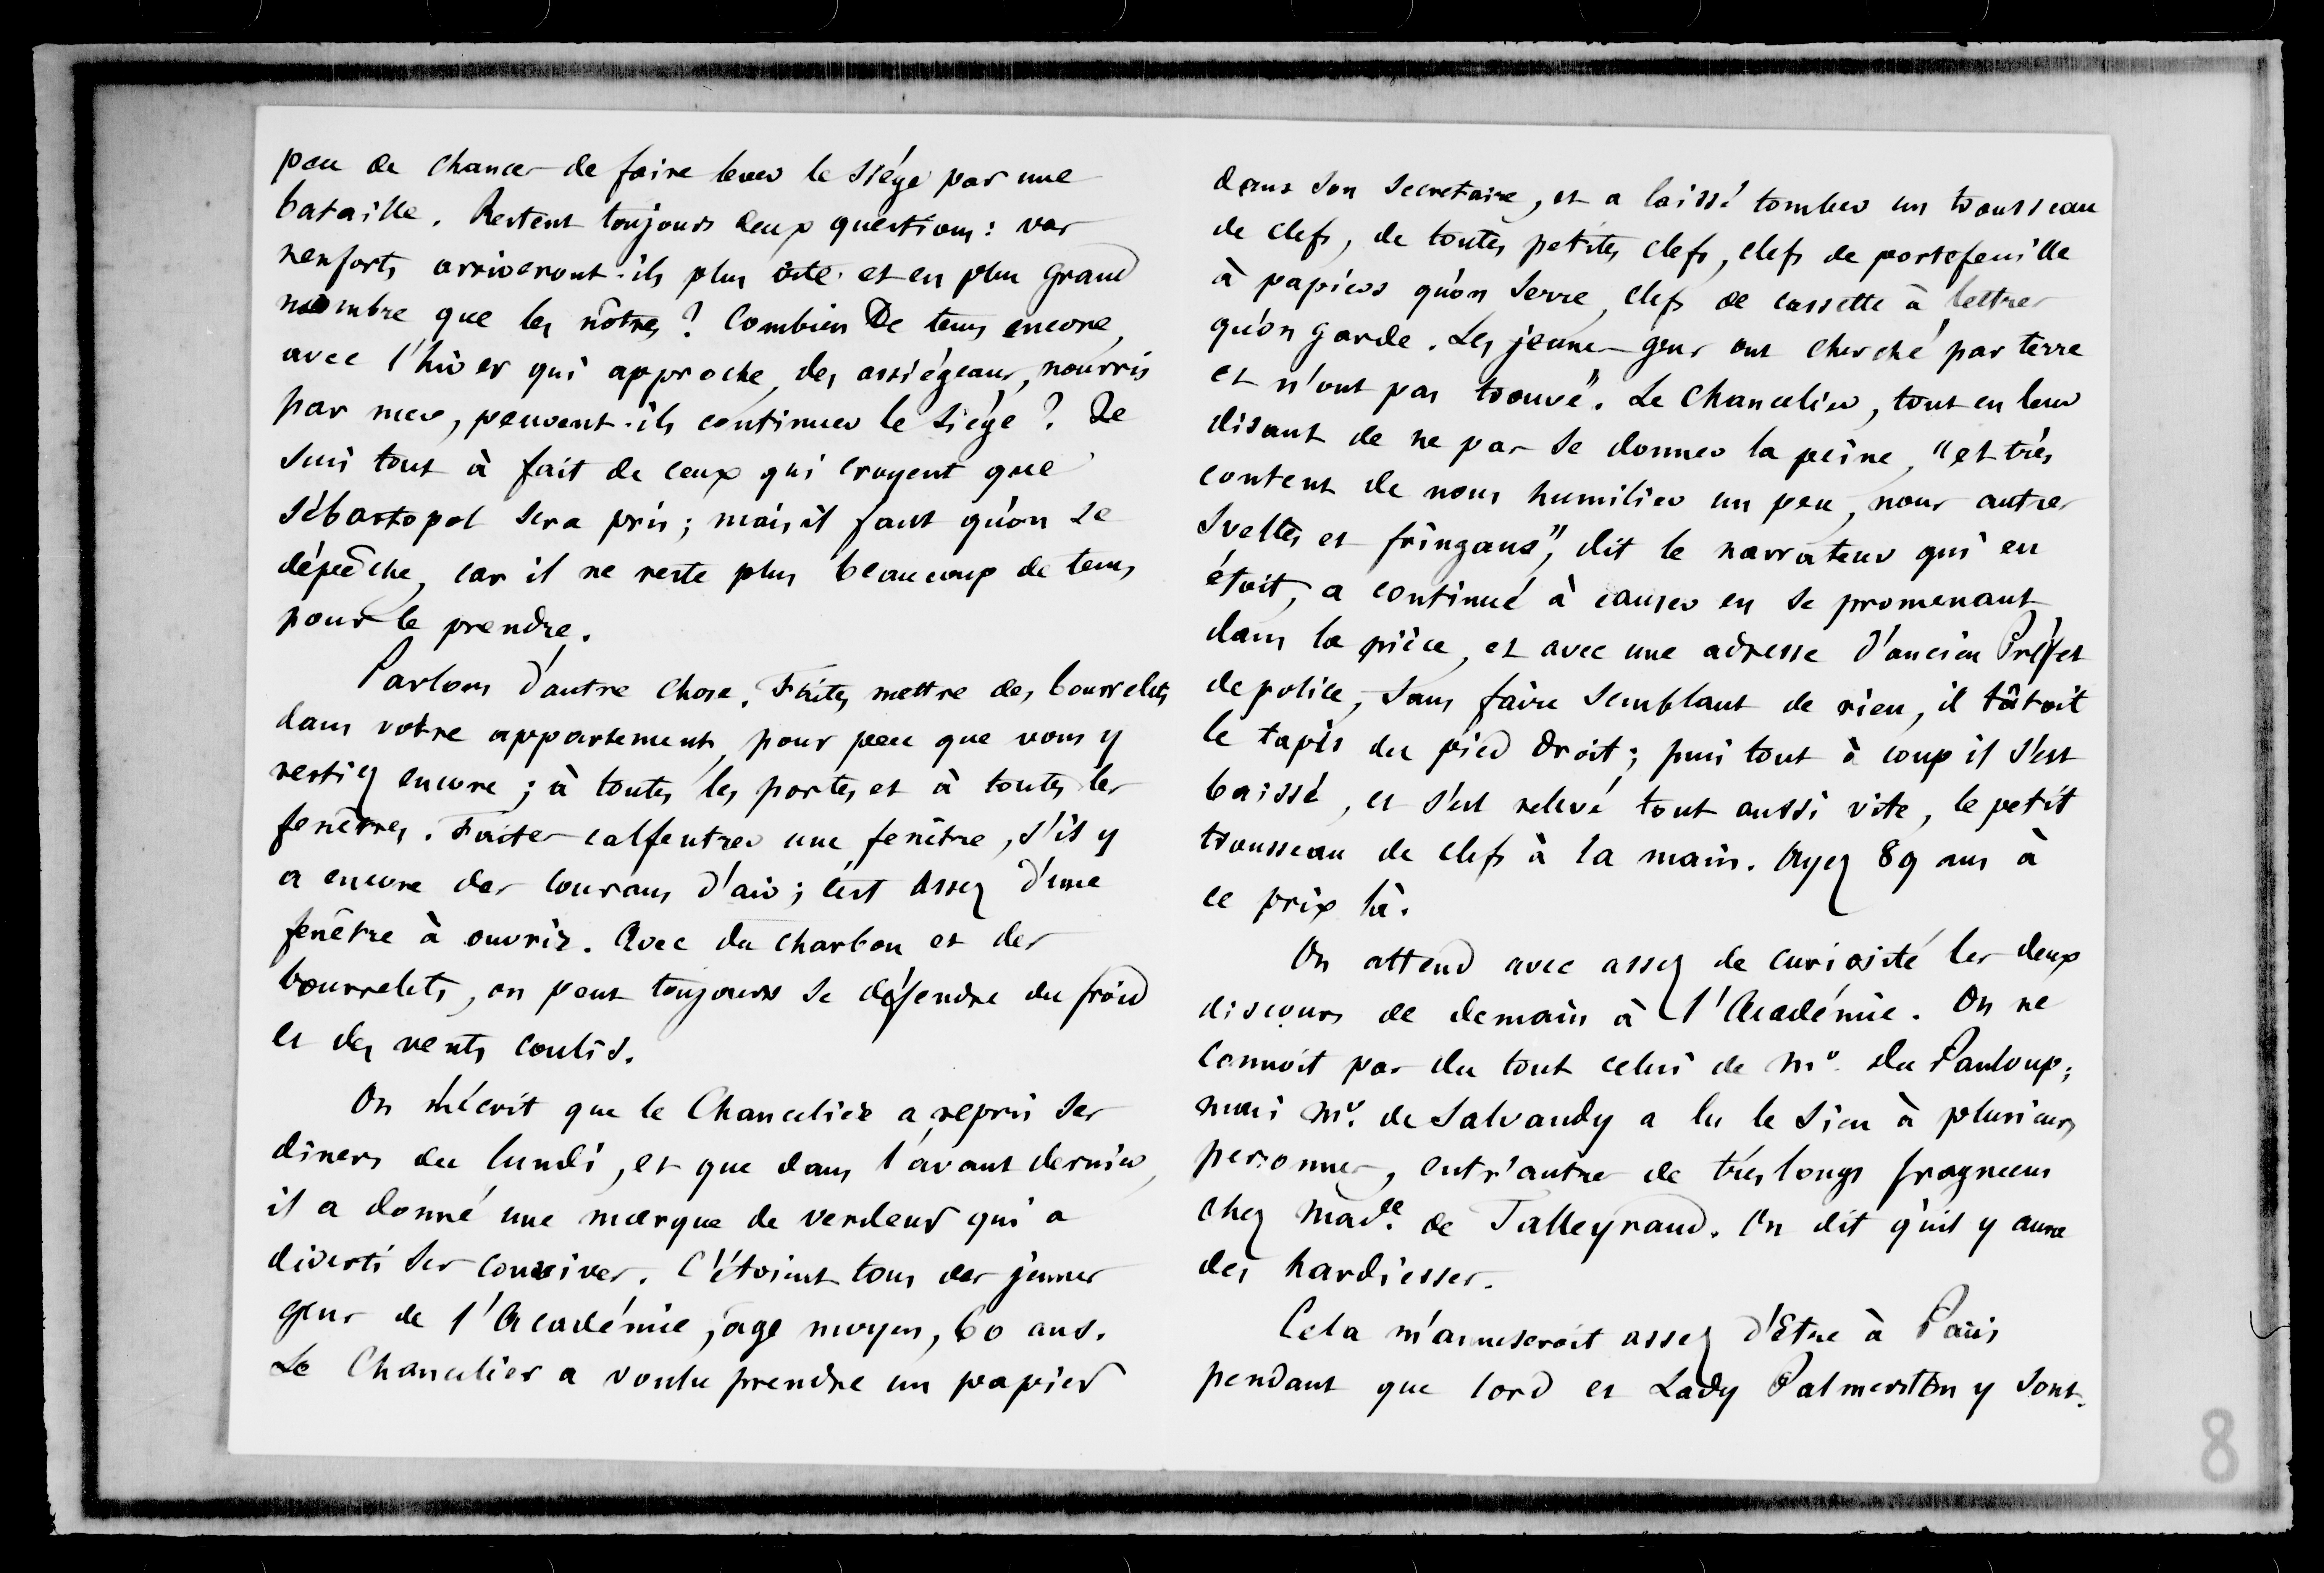 peu de chances de faire lever le siége par une
bataille. Restent toujours deux questions : vos
renforts arriveront-ils plus vite et en plus grand
nombre que les nôtres ? Combien de tems encore,
avec l'hiver qui approche, des assiégeans, nourris
par mer, peuvent-ils continuer le siége ? Je
suis tout à fait de ceux qui croyent que
Sébastopol sera pris ; mais il faut qu'on se
dépêche, car il ne reste plus beaucoup de tems
pour le prendre.
Parlons d'autre chose. Faites mettre des bourrelets
dans votre appartement, pour peu que vous y
restiez encore ; à toutes les portes et à toutes les
fenêtres. Faites calfeutrer une fenêtre, s'il y
a encore des courans d'air ; c'est assez d'une
fenêtre à ouvrir. Avec du charbon et des
bourrelets, on peut toujours se défendre du froid
et des vents coulis.
On m'écrit que le Chancelier a repris ses
diners du lundi, et que dans l'avant dernier,
il a donné une marque de verdeur qui a
diverti ses convives. C'étoient tous des jeunes
gens de l'Académie, âge moyen, 60 ans.
Le Chancelier a voulu prendre un papier
dans son secretaire, et a laissé tomber un trousseau
de clefs, de toutes petites clefs, clefs de portefeuille
à papiers qu'on serre, clefs de cassette à lettres
qu'on garde. Les jeunes gens ont cherché par terre
et n'ont pas trouvé". Le Chancelier, tout en leur
disant de ne pas se donner la peine, "et très
content de nous humilier un peu, nous autres
sveltes et fringans", dit le narrateur qui en
étoit, a continué à causer en se promenant
dans la pièce, et avec une adresse d'ancien Préfet
de police, sans faire semblant de rien, il tâtoit
le tapis du pied droit ; puis tout à coup il s'est
baissé, et s'est relevé tout aussi vite, le petit
trousseau de clefs à la main. Ayez 89 ans à
ce prix là.
On attend avec assez de curiosité les deux
discours de demain à l'Académie. On ne
connoit pas du tout celui de Mr. Du Panloup ;
mais Mr. de Salvandy a lu le sien à plusieurs
personnes, entr'autres de très longs fragmens
chez Made. de Talleyrand. On dit qu'il y aura
des hardiesses.
Cela m'amuseroit assez d'être à Paris
pendant que lord et Lady Palmerston y sont.
8